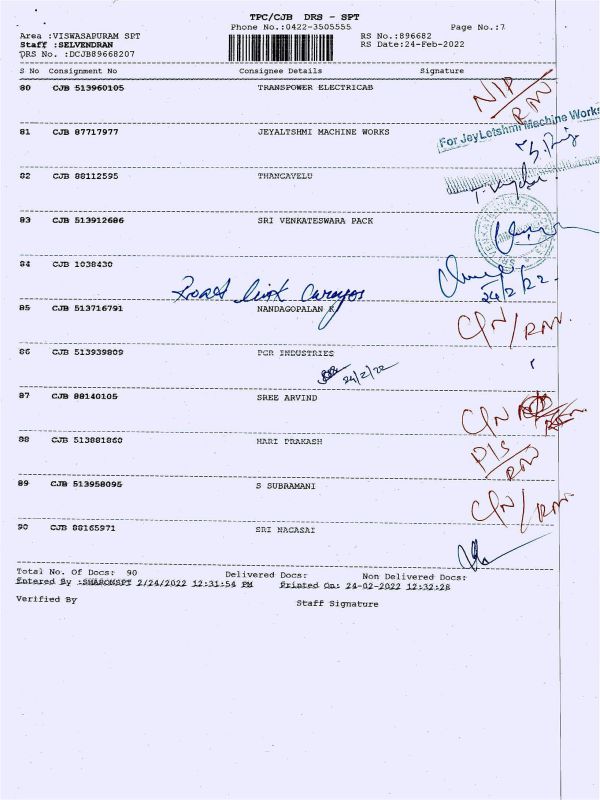 TPC/CJB DRS - SPT
Phone No.:0422-3505555 Page No.:7
Area :VISWASAPURAM SPT RS No.:896682
Staff :SELVENDRAN RS Date:24-Feb-2022
DRS No. :DCJB89668207
S No Consignment No Consignee Details Signature
80 CJB 513960105 TRANSPOWER ELECTRICAB
N/P/RNV
81 CJB 87717977 JEYALTSHMI MACHINE WORKS
For JayLetshmi Machine Works
82 CJB 88112595 THANGAVELU
83 CJB 513912686 SRI VENKATESWARA PACK
84 CJB 1038430
24/2/22
85 CJB 513716791 NANDAGOPALAN K
C/N/RNV.
86 CJB 513939809 PGR INDUSTRIES
24/2/22
87 CJB 88140105 SREE ARVIND
C/N
88 CJB 513881860 HARI PRAKASH
D/S/RNV
89 CJB 513958095 S SUBRAMANI
C/N/RNV
90 CJB 88165971 SRI NAGASAI
Total No. Of Docs: 90 Delivered Docs: Non Delivered Docs:
Entered By :SHARONSPT 2/24/2022 12:31:54 PM Printed On: 24-02-2022 12:32:28
Verified By Staff Signature